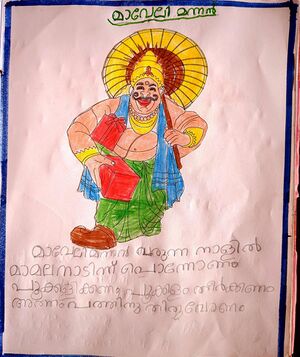 മാവേലി മന്നൻ
മാവേലി മന്നവൻ വരുന്ന നാളിൽ
മാമലനാടിന് പൊന്നോണം
പൂക്കളിക്കണം പൂക്കളം തീർക്കണം
അത്തം പത്തിനു തിരുവോണം